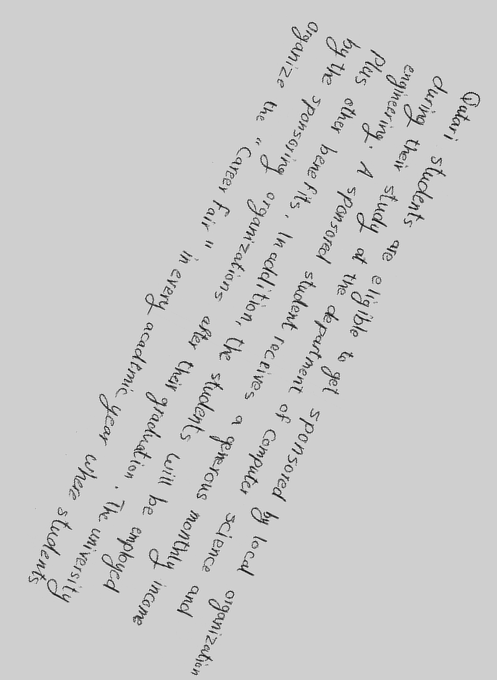 Qatari students are eligible to get sponsored by local organization
during their study at the department of computer science and
engineering. A sponsored student receives a generous monthly income
plus other benefits. In addition, the students will be employed
by the sponsoring organizations after their graduation. The university
organize the "Career Fair" in every academic year where students